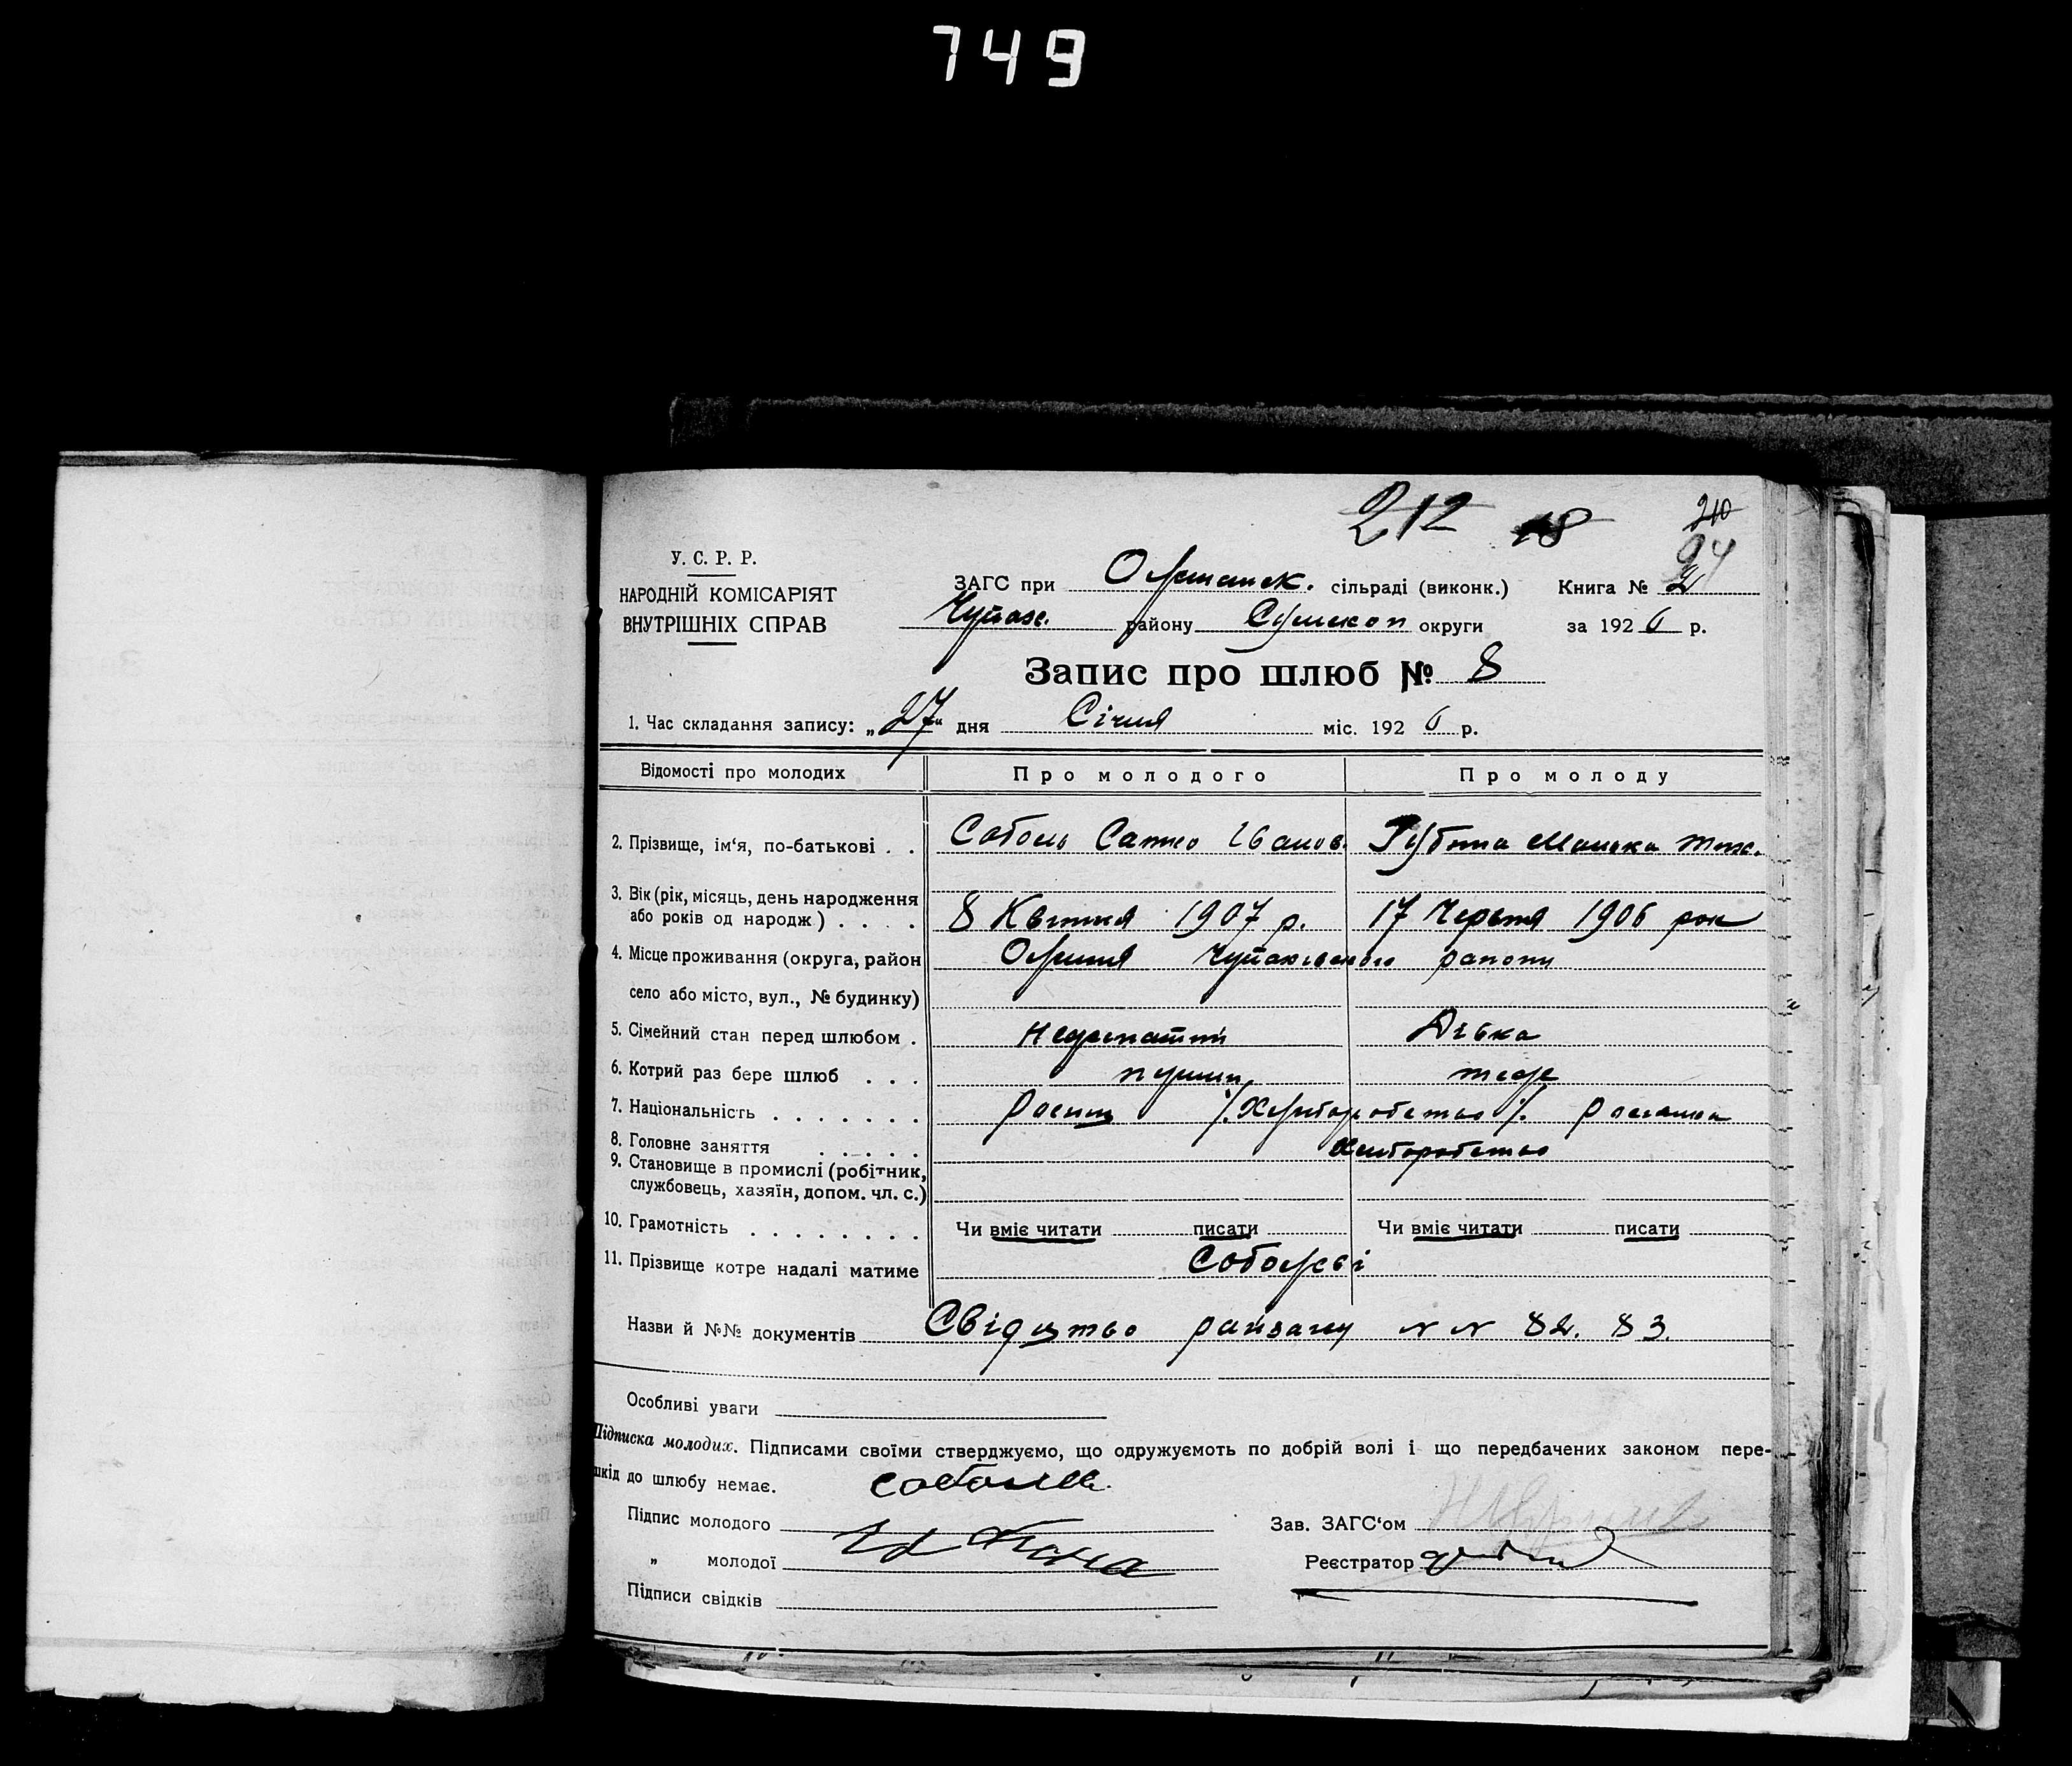 749
212 18 210
94
У. С. Р. Р.
НАРОДНІЙ КОМІСАРІЯТ
ВНУТРІШНІХ СПРАВ
ЗАГС при сільраді (виконк.) Книга № 2
Чупах. району округи за 1926 р.
Запис про шлюб № 8
1. Час складання запису: „27“ дня Січня міс. 1926 р.
Відомості про молодих Про молодого Про молоду
2. Прізвище, ім‘я, по-батькові . . Соболь Іванов.
3. Вік (рік, місяць, день народження
або років од народж) . . . . 8 Квітня 1907 р. 17 Червня 1906 рок
4. Місце проживання (округа, район Чупахівського району
село або місто, вул., № будинку)
5. Сімейний стан перед шлюбом . Дівка
6. Котрий раз бере шлюб . . . перший теж
7. Національність . . . . . . .
8. Головне заняття . . . . . Хліборобство
9. Становище в промислі (робітник,
службовець, хазяїн, допом. чл. с.)
10. Грамотність . . . . . . . . Чи вміє читати писати Чи вміє читати писати
11. Прізвище котре надалі матиме Соболєві
Назви й №№ документів Свідцтво райзагсу N N 82. 83.
Особливі уваги
Підписка молодих. Підписами своїми стверджуємо, що одружуємоть по добрій волі і що передбачених законом пере-
шкід до шлюбу немає.
Підпис молодого Зав. ЗАГС‘ом
„ молодої Реєстратор
Підписи свідків